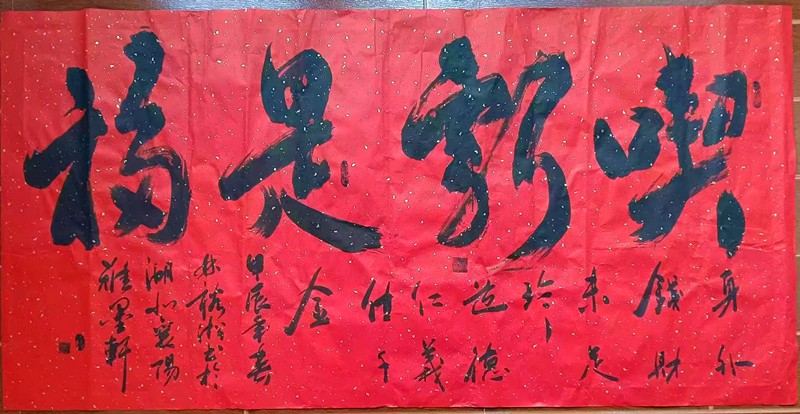 喫虧是福
身外
錢財
未足
珍
道德
仁義
值千
金
甲辰年春
林裕松書於
湖北襄陽
雅墨軒